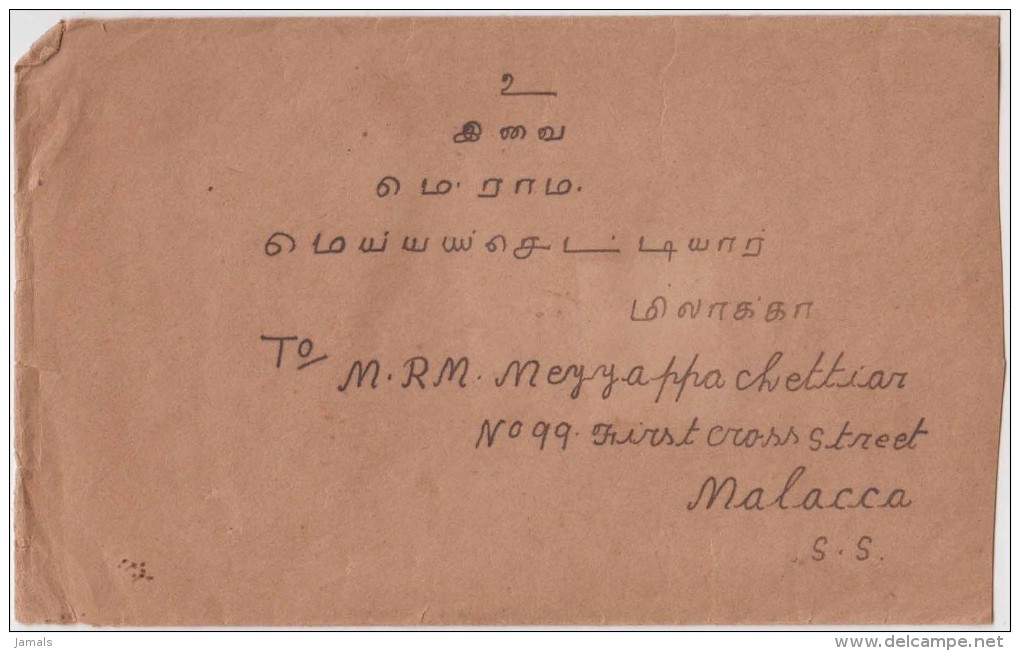 உ
இவை
மெ. ராம.
மெய்யய்செட்டியார்
மிலாக்கா
To
M. RM. Meyyappa chettiar
No 99. First cross street
Malacca
S. S.
jamals
www.delcampe.net